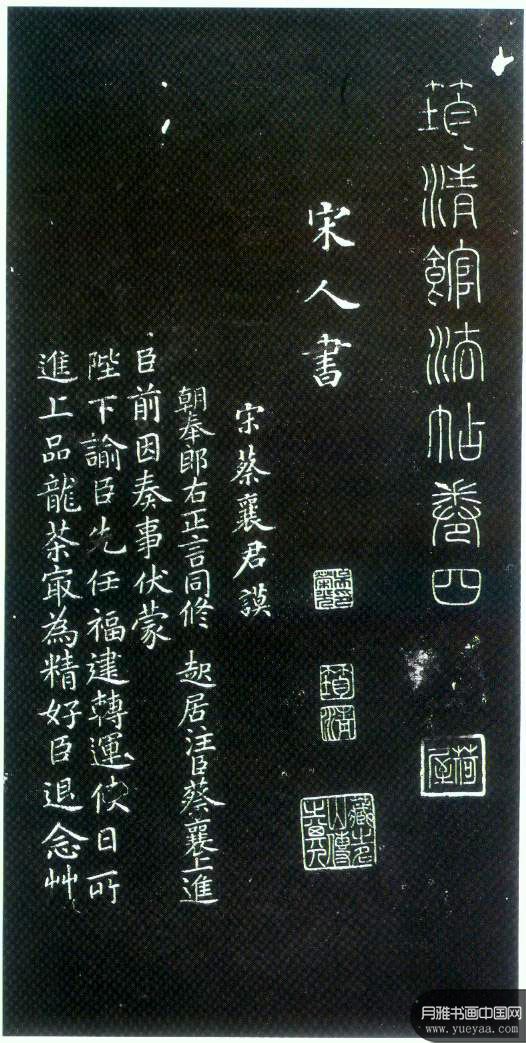 筠清館法帖卷四
宋人書
筠清
宋蔡襄君謨
朝奉郎右正言同修 起居注臣蔡襄上進
臣前因奏事伏蒙
陛下諭臣先任福建轉運使日所
進上品龍茶㝡為精好臣退念艸
月雅书画中国网
www.yueyaa.com